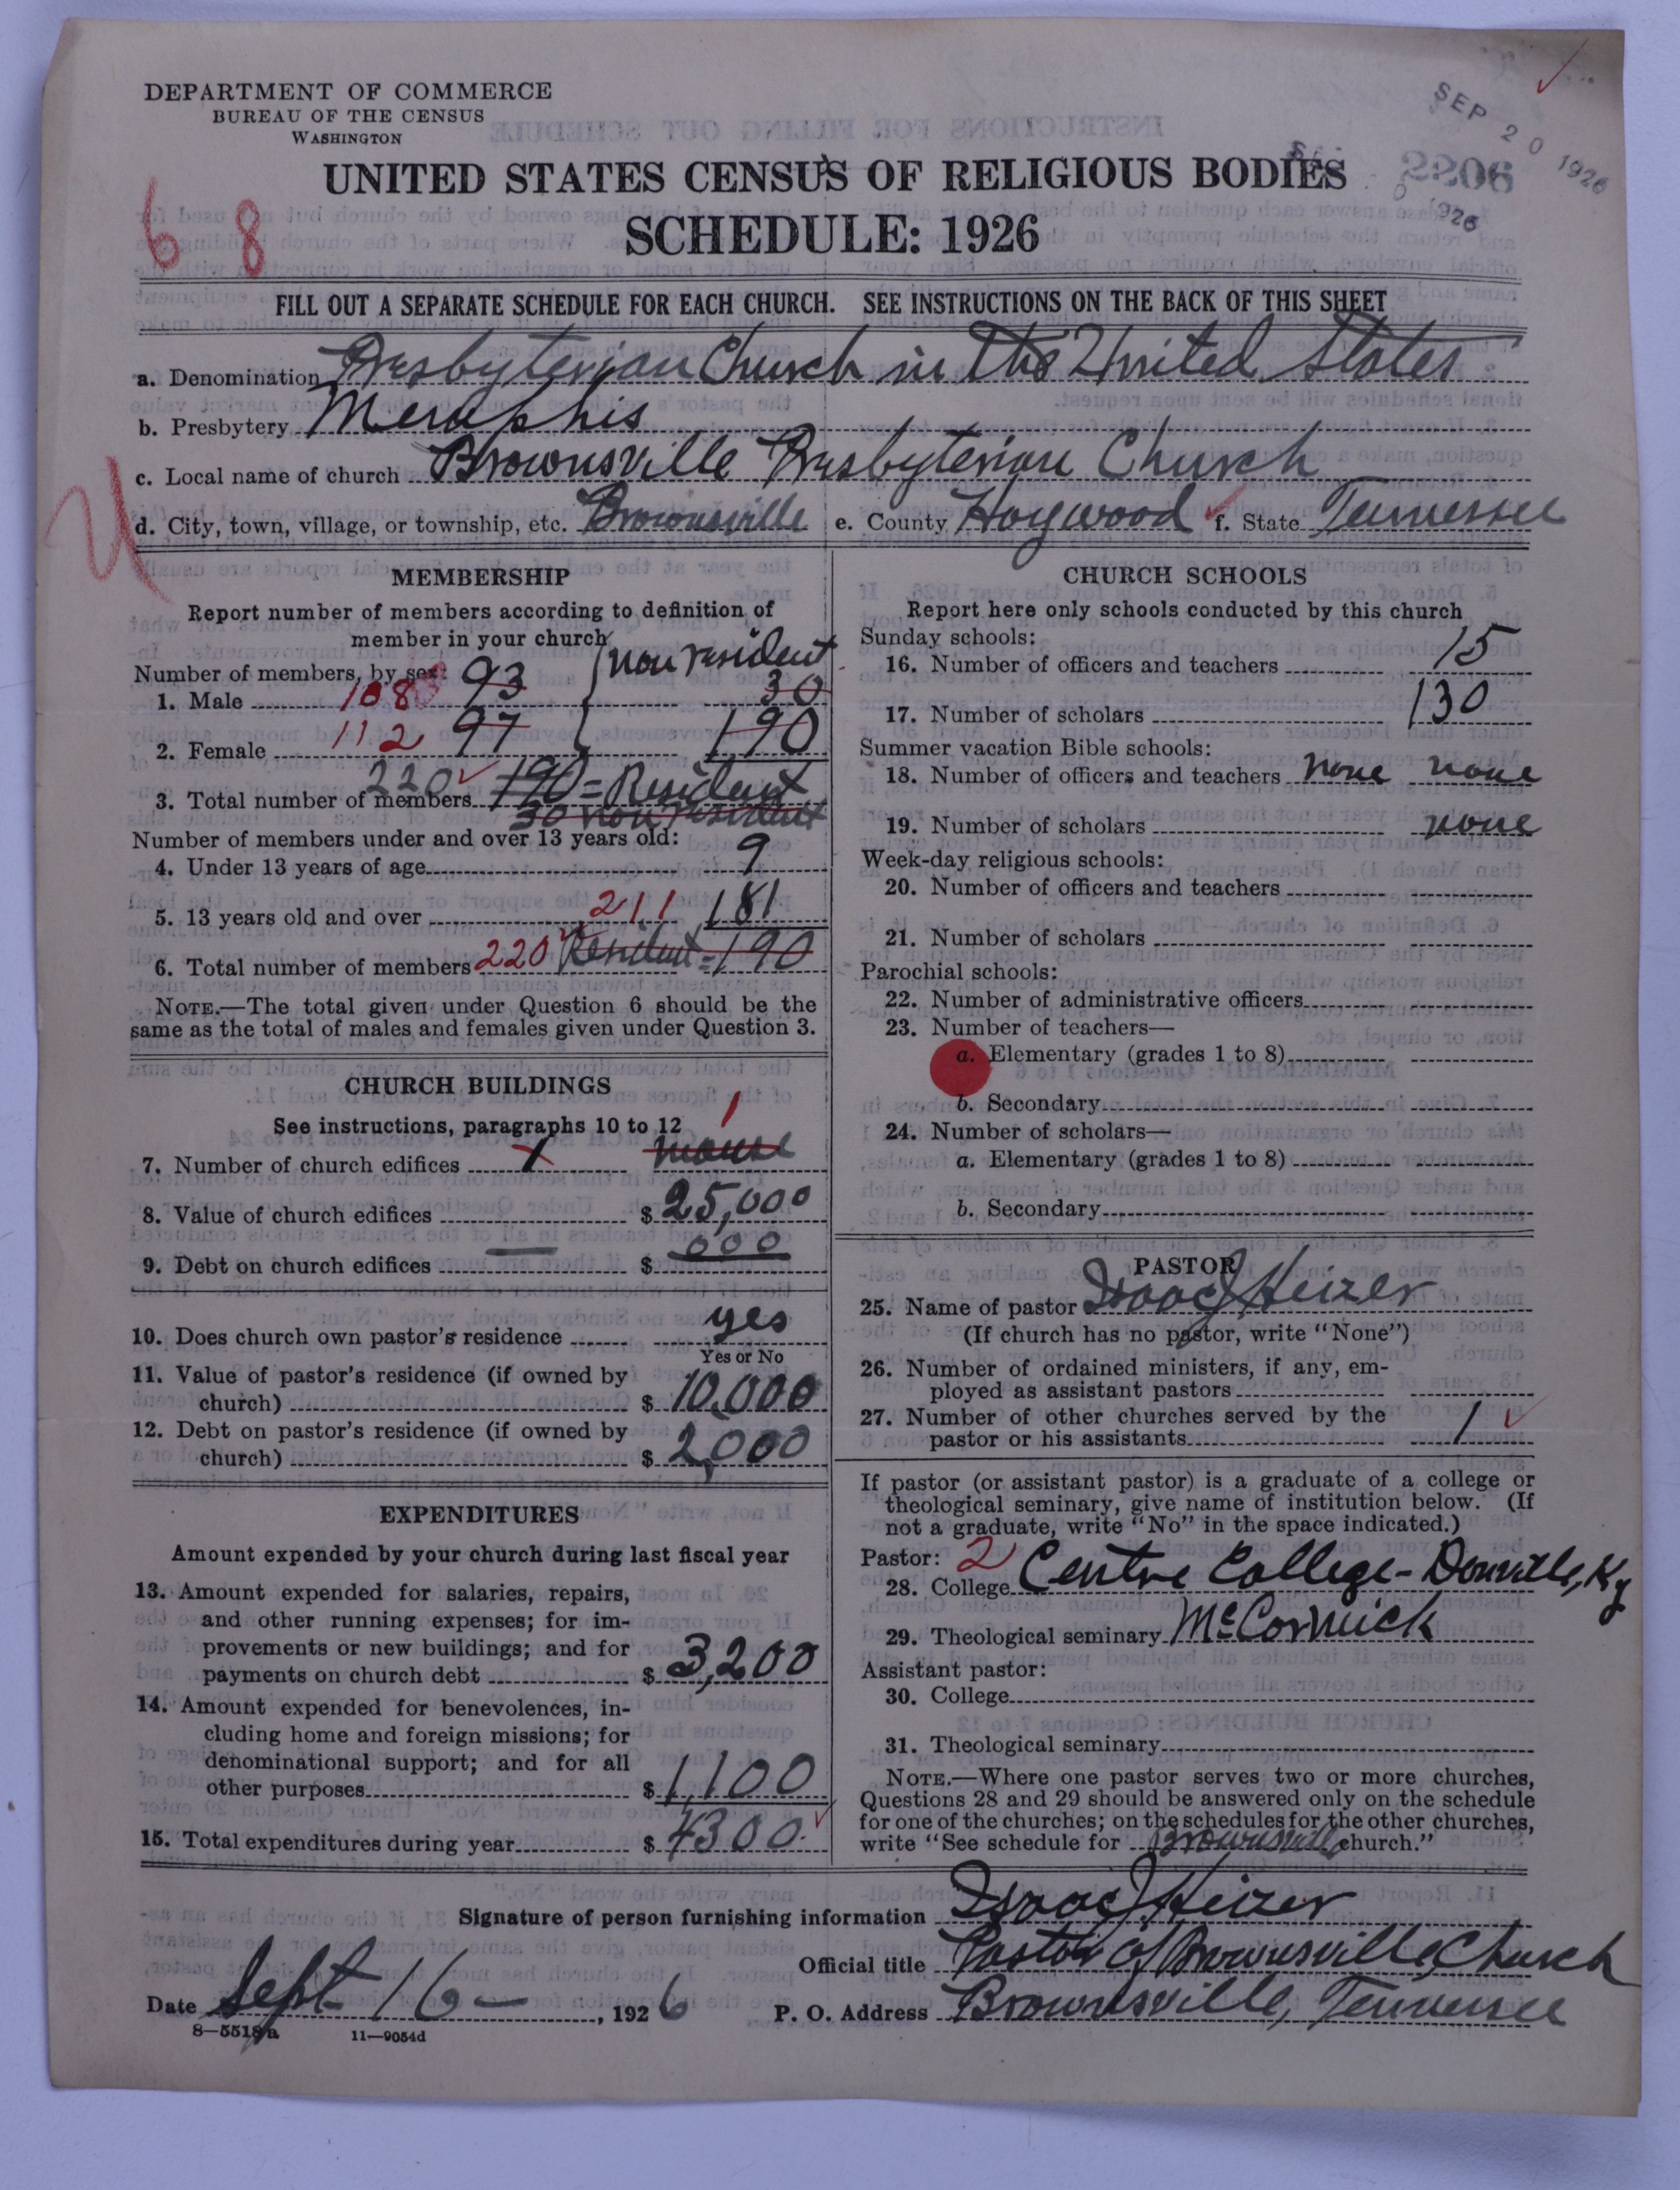 DEPARTMENT OF COMMERCE
BUREAU OF THE CENSUS
WASHINGTON
SEP 20 1926
2206
1926
UNITED STATES CENSUS OF RELIGIOUS BODIES
SCHEDULE: 1926
6 8
FILL OUT A SEPARATE SCHEDULE FOR EACH CHURCH. SEE INSTRUCTIONS ON THE BACK OF THIS SHEET
a. Denomination Presbyterian Church in the United States
b. Presbytery Memphis
c. Local name of church Brownsville Presbyterian Church
d. City, town, village, or township, etc. Brownsville e. County Haywood f. State Tennessee
MEMBERSHIP
Report number of members according to definition of
member in your church
Number of members, by sex: non resident
1. Male 108 93 30
2. Female 112 97 190
3. Total number of members 220 190 = Resident
30 non resident
Number of members under and over 13 years old:
4. Under 13 years of age 9
5. 13 years old and over 211 181
6. Total number of members 220 Resident = 190
NOTE.—The total given under Question 6 should be the
same as the total of males and females given under Question 3.
CHURCH BUILDINGS
See instructions, paragraphs 10 to 12 1
7. Number of church edifices 1 manse
8. Value of church edifices $ 25,000
9. Debt on church edifices — $ 000
10. Does church own pastor's residence yes
Yes or No
11. Value of pastor's residence (if owned by
church) $ 10,000
12. Debt on pastor's residence (if owned by
church) $ 2,000
EXPENDITURES
Amount expended by your church during last fiscal year
13. Amount expended for salaries, repairs,
and other running expenses; for im-
provements or new buildings; and for
payments on church debt $ 3,200
14. Amount expended for benevolences, in-
cluding home and foreign missions; for
denominational support; and for all
other purposes $ 1,100
15. Total expenditures during year $ 4300.
CHURCH SCHOOLS
Report here only schools conducted by this church
Sunday schools:
16. Number of officers and teachers 15
17. Number of scholars 130
Summer vacation Bible schools:
18. Number of officers and teachers none none
19. Number of scholars none
Week-day religious schools:
20. Number of officers and teachers
21. Number of scholars
Parochial schools:
22. Number of administrative officers
23. Number of teachers—
a. Elementary (grades 1 to 8)
b. Secondary
24. Number of scholars—
a. Elementary (grades 1 to 8)
b. Secondary
PASTOR
25. Name of pastor Isaac J Heizer
(If church has no pastor, write "None")
26. Number of ordained ministers, if any, em-
ployed as assistant pastors
27. Number of other churches served by the
pastor or his assistants 1
If pastor (or assistant pastor) is a graduate of a college or
theological seminary, give name of institution below. (If
not a graduate, write "No" in the space indicated.)
Pastor: 2
28. College Centre College - Danville, Ky
29. Theological seminary McCormick
Assistant pastor:
30. College
31. Theological seminary
NOTE.—Where one pastor serves two or more churches,
Questions 28 and 29 should be answered only on the schedule
for one of the churches; on the schedules for the other churches,
write "See schedule for Brownsville church."
Signature of person furnishing information Isaac J Heizer
Official title Pastor of Brownsville Church
Date Sept 16 — , 1926 P. O. Address Brownsville, Tennessee
8—5518a 11—9054d